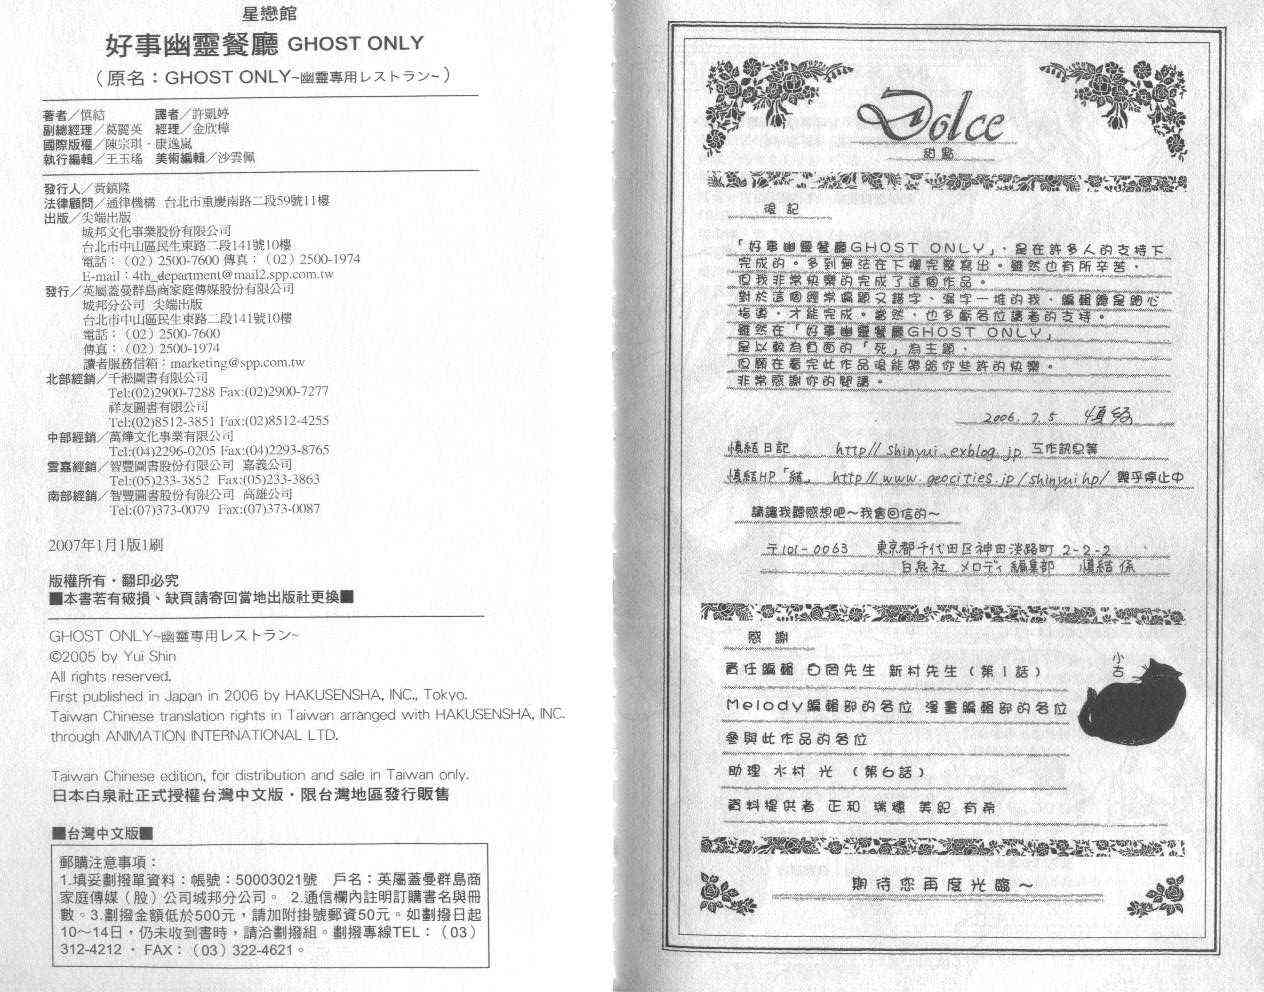 星戀館
好事幽靈餐廳 GHOST ONLY
（原名：GHOST ONLY~幽靈專用レストラン~）
著者／慎結　譯者／許凱婷
副總經理／葛麗英　經理／金欣樺
國際版權／陳宗琪．康逸嵐
執行編輯／王玉瑤　美術編輯／沙雲佩
發行人／黃鎮隆
法律顧問／通律機構　台北市重慶南路二段59號11樓
出版／尖端出版
城邦文化事業股份有限公司
台北市中山區民生東路二段141號10樓
電話：（02）2500-7600 傳真：（02）2500-1974
E-mail：4th_department@mail2.spp.com.tw
發行／英屬蓋曼群島商家庭傳媒股份有限公司
城邦分公司　尖端出版
台北市中山區民生東路二段141號10樓
電話：（02）2500-7600
傳真：（02）2500-1974
讀者服務信箱：marketing@spp.com.tw
北部經銷／千淞圖書有限公司
Tel:(02)2900-7288 Fax:(02)2900-7277
祥友圖書有限公司
Tel:(02)8512-3851 Fax:(02)8512-4255
中部經銷／萬燁文化事業有限公司
Tel:(04)2296-0205 Fax:(04)2293-8765
雲嘉經銷／智豐圖書股份有限公司　嘉義公司
Tel:(05)233-3852 Fax:(05)233-3863
南部經銷／智豐圖書股份有限公司　高雄公司
Tel:(07)373-0079 Fax:(07)373-0087
2007年1月1版1刷
版權所有．翻印必究
■本書若有破損、缺頁請寄回當地出版社更換■
GHOST ONLY~幽靈專用レストラン~
©2005 by Yui Shin
All rights reserved.
First published in Japan in 2006 by HAKUSENSHA, INC., Tokyo.
Taiwan Chinese translation rights in Taiwan arranged with HAKUSENSHA, INC.
through ANIMATION INTERNATIONAL LTD.
Taiwan Chinese edition, for distribution and sale in Taiwan only.
日本白泉社正式授權台灣中文版．限台灣地區發行販售
■台灣中文版■
郵購注意事項：
1.填妥劃撥單資料：帳號：50003021號　戶名：英屬蓋曼群島商
家庭傳媒（股）公司城邦分公司。 2.通信欄內註明訂購書名與冊
數。3.劃撥金額低於500元，請加附掛號郵資50元。如劃撥日起
10～14日，仍未收到書時，請洽劃撥組。劃撥專線TEL：（03）
312-4212 ． FAX：（03）322-4621。
Dolce
甜點
後記
「好事幽靈餐廳GHOST ONLY」，是在許多人的支持下
完成的。多到無法在下欄完整寫出。雖然也有所辛苦，
但我非常快樂的完成了這個作品。
對於這個經常偏題又錯字、漏字一堆的我，編輯總是細心
指導，才能完成。當然，也多虧各位讀者的支持。
雖然在「好事幽靈餐廳GHOST ONLY」
是以較為負面的「死」為主題，
但願在看完此作品後能帶給你些許的快樂。
非常感謝你的閱讀。
2006. 7. 5　慎結
慎結日記　http// shinyui.exblog.jp 工作訊息等
慎結HP「結」 http // www.geocities.jp/shinyuihp/ 幾乎停止中
請讓我聽感想吧～我會回信的～
〒101-0063　東京都千代田区神田淡路町 2-2-2
白泉社 メロディ編集部　慎結 係
感謝
責任編輯 白岡先生 新村先生（第1話）
Melody編輯部的各位 漫畫編輯部的各位
參與此作品的各位
助理 水村 光 （第6話）
資料提供者 正和 瑞穗 美紀 有希
小古
期待您再度光臨～